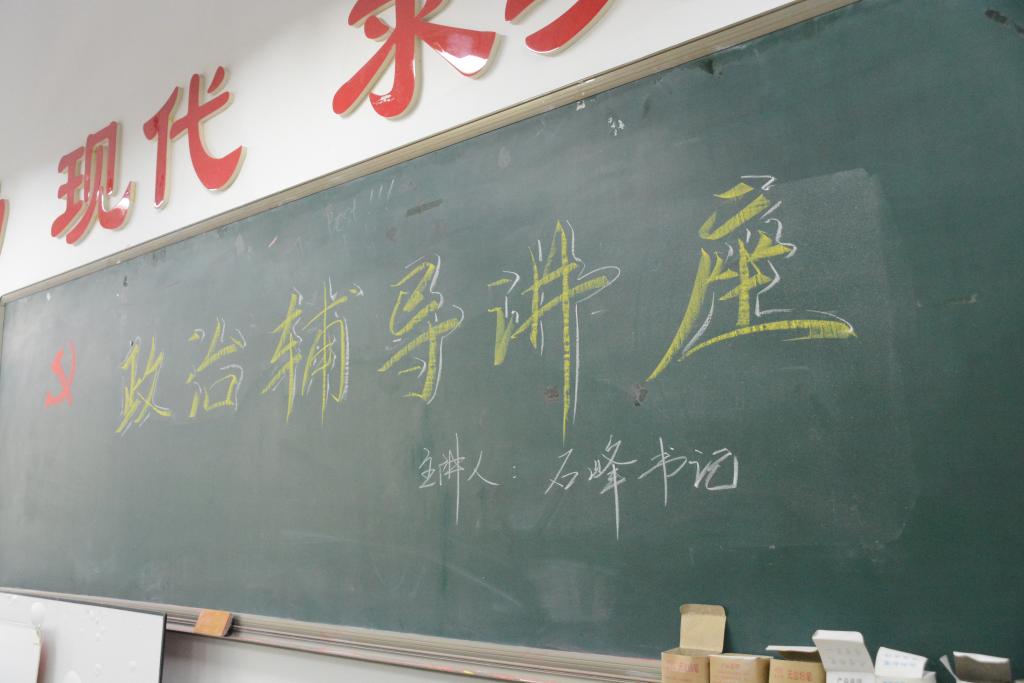 现代 求
Best !!!
政治辅导讲座
主讲人：石峰书记